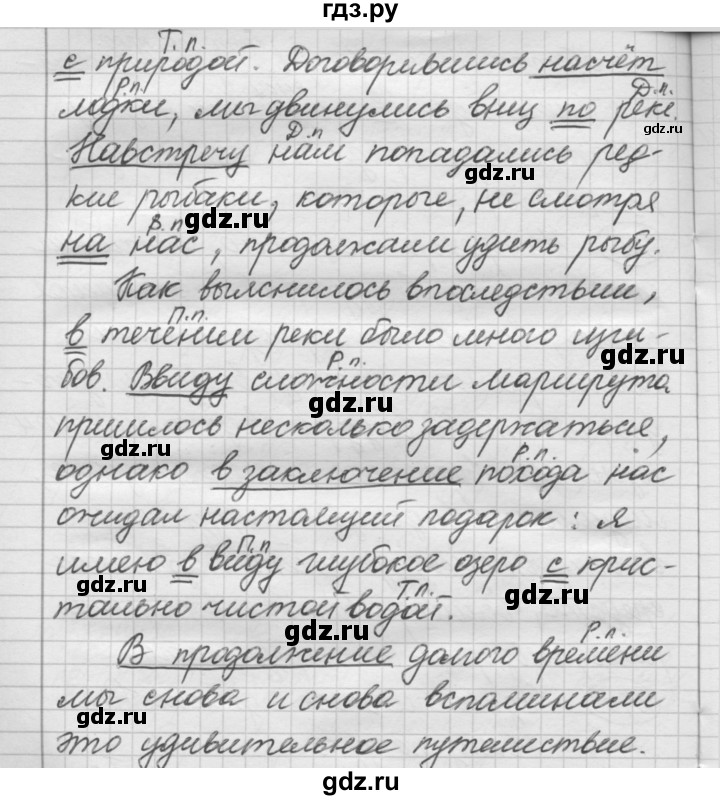 гдз.ру
Т.п.
с природой. Договорившись насчёт
Р.п. Д.п.
лодки, мы двинулись вниз по реке.
gdz.ru
Д.п
Навстречу нам попадались ред-
gdz.ru
кие рыбаки, которые, не смотря
gdz.ru
В.п
на нас, продолжали удить рыбу.
gdz.ru
Как выяснилось впоследствии,
П.п.
в течении реки было много изги-
gdz.ru
gdz.ru
Р.п.
бов. Ввиду сложности маршрута
gdz.ru
пришлось несколько задержаться,
gdz.ru
Р.п.
однако в заключение похода нас
gdz.ru
ожидал настоящий подарок: я
П.п
имею в виду глубокое озеро с крис-
gdz.ru
Т.п.
тально чистой водой.
gdz.ru
gdz.ru
Р.п.
В продолжение долгого времени
gdz.ru
мы снова и снова вспоминали
gdz.ru
это удивительное путешествие.
gdz.ru
gdz.ru